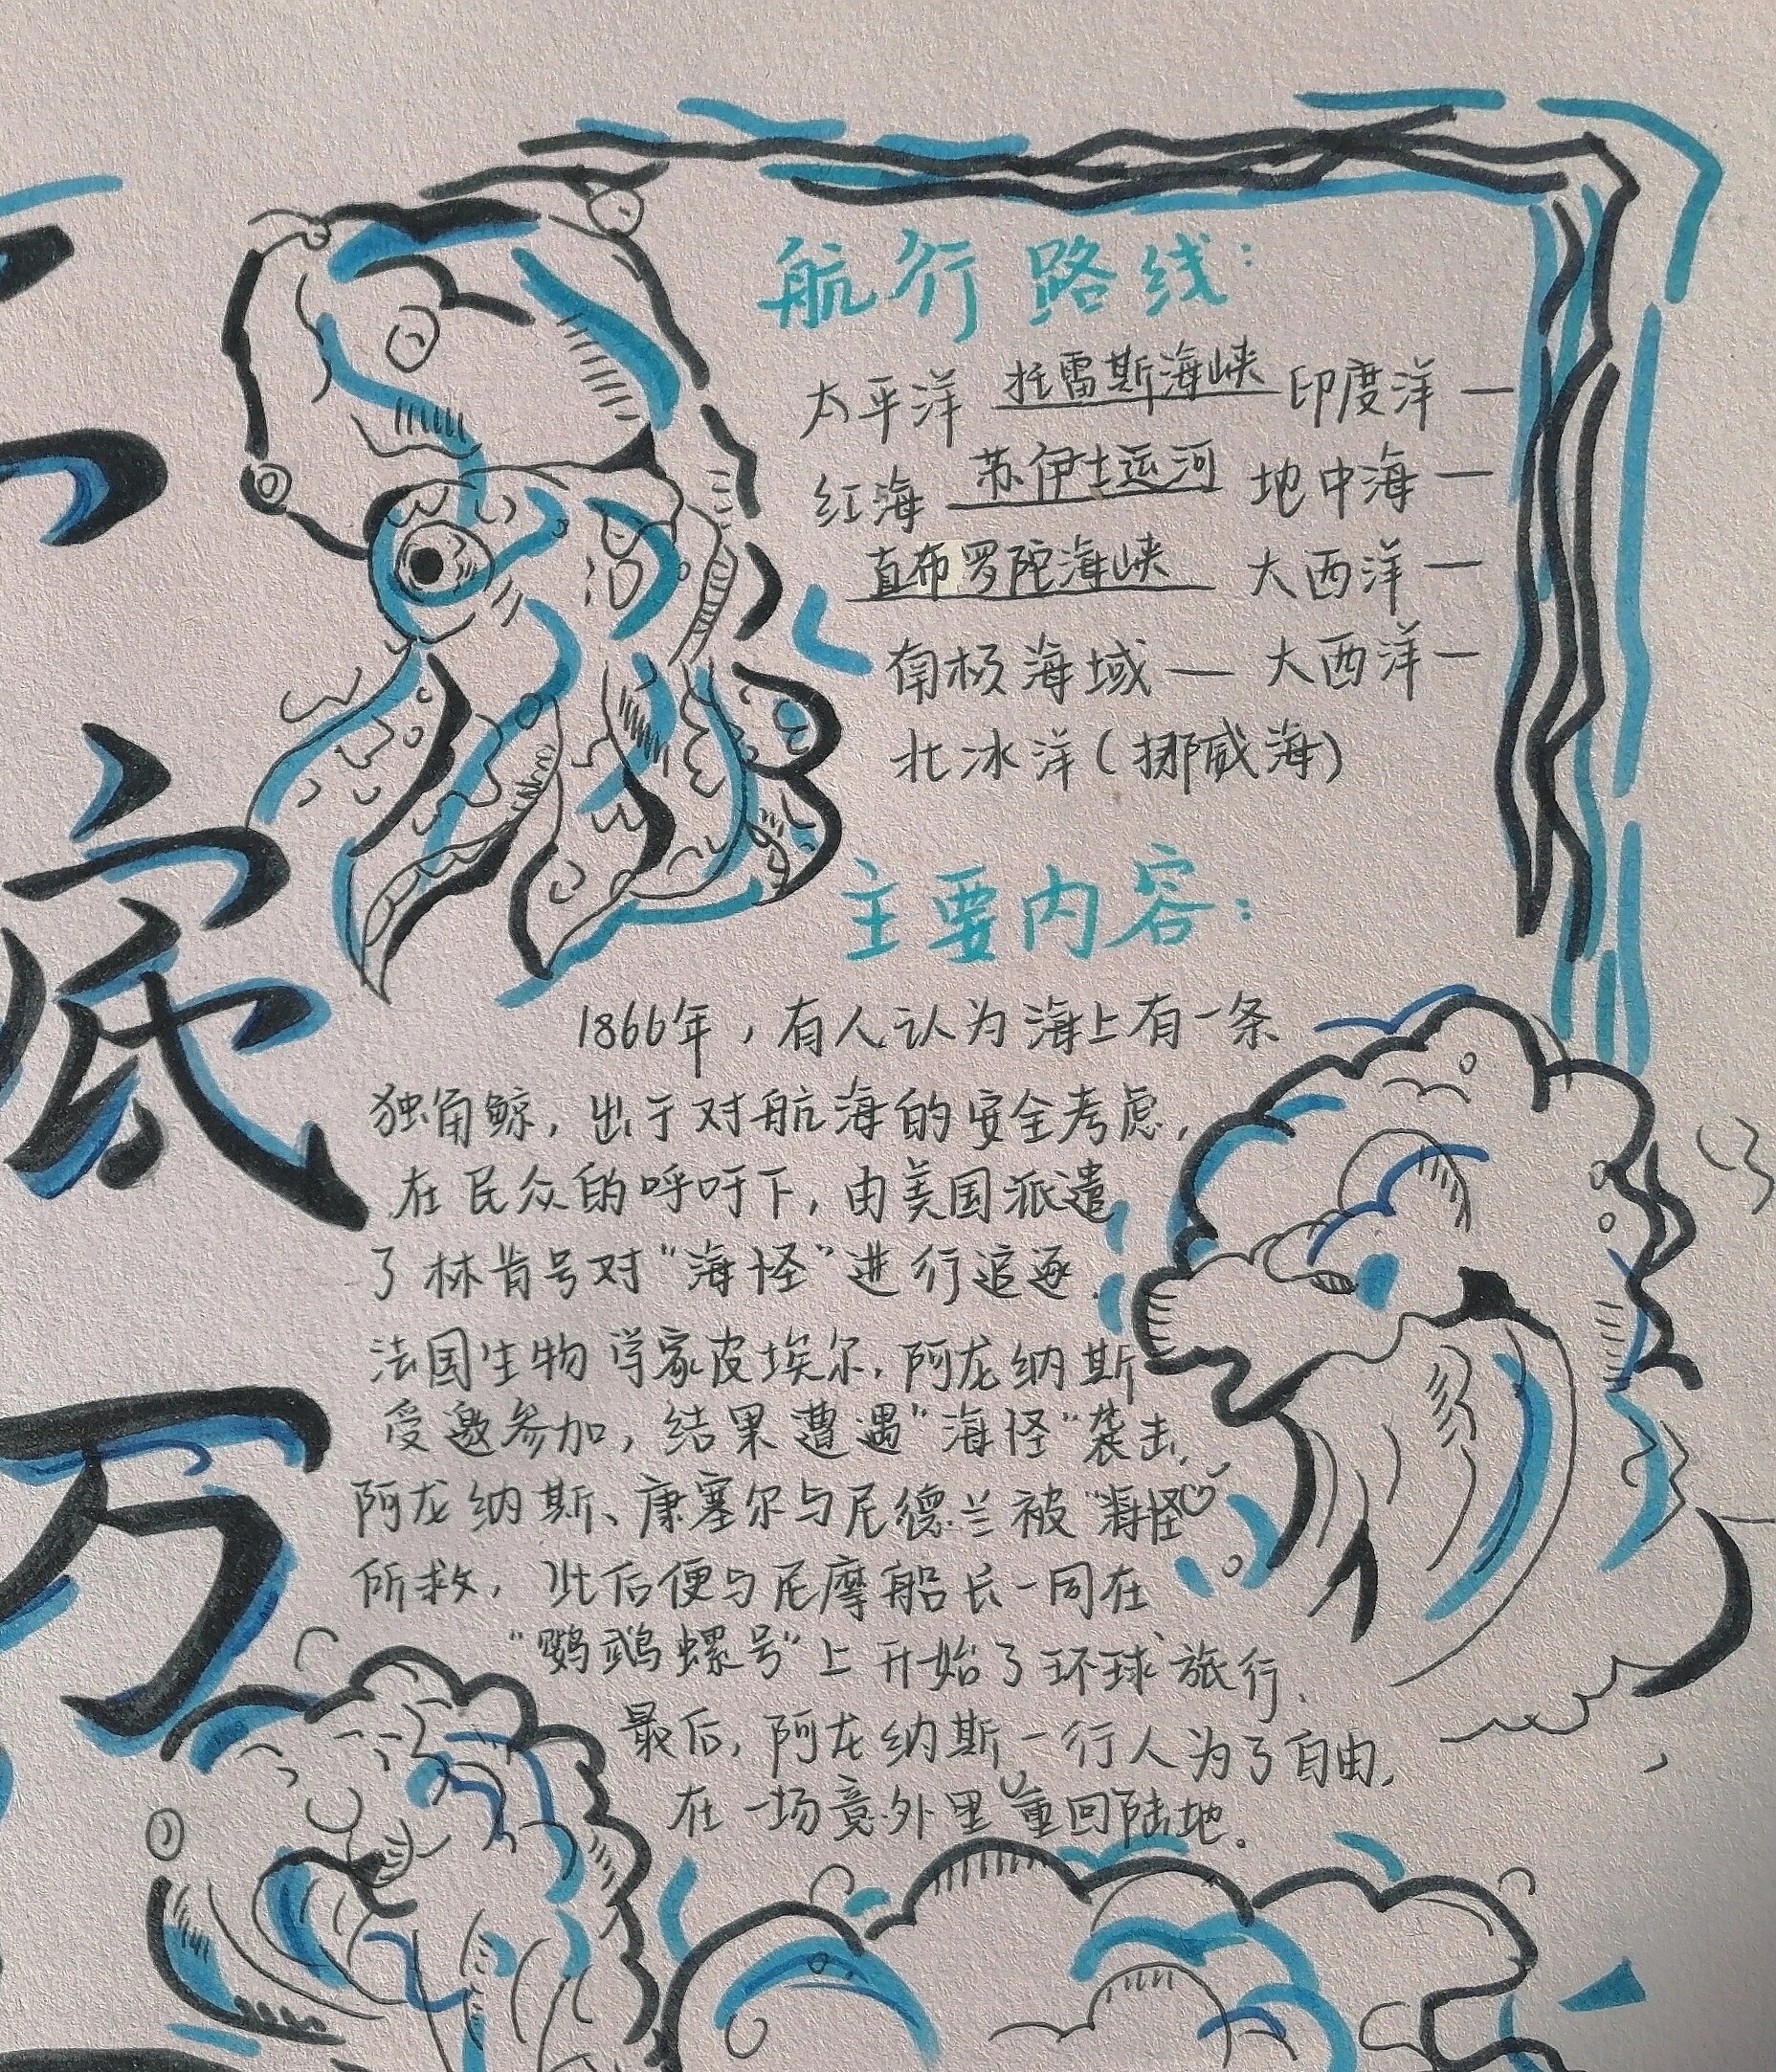 底
万
航行路线：
太平洋 托雷斯海峡 印度洋—
红海 苏伊士运河 地中海—
直布罗陀海峡 大西洋—
南极海域—大西洋—
北冰洋（挪威海）
主要内容：
1866年，有人认为海上有一条
独角鲸，出于对航海的安全考虑，
在民众的呼吁下，由美国派遣
了林肯号对“海怪”进行追逐.
法国生物学家皮埃尔，阿龙纳斯
受邀参加，结果遭遇“海怪”袭击.
阿龙纳斯、康塞尔与尼德兰被“海怪”
所救，此后便与尼摩船长一同在
“鹦鹉螺号”上开始了环球旅行.
最后，阿龙纳斯一行人为了自由，
在一场意外里重回陆地。